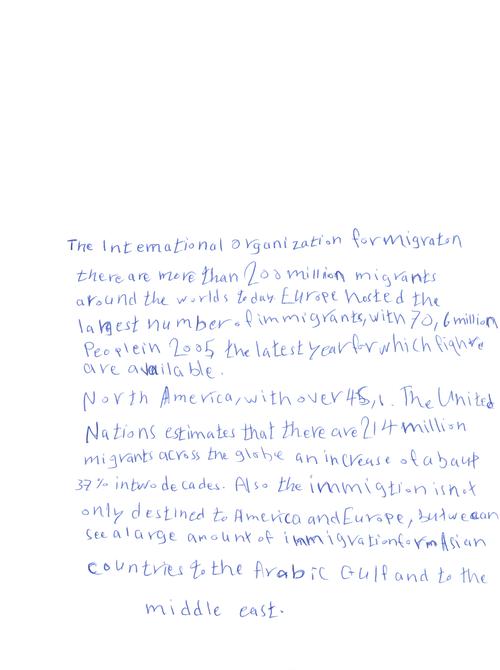 The International organization for migraton
there are more than 200 million migrants
around the worlds today Europe hosted the
largest number of immigrants, with 70,6 million
People in 2005 the latest year for which fighre
are available.
North America, with over 45,1. The United
Nations estimates that there are 214 million
migrants across the globe an increase of abaut
37% in two decades. Also the immigtion is not
only destined to America and Europe, but we can
see a large amount of immigration form Asian
countries to the Arabic Gulf and to the
middle east.